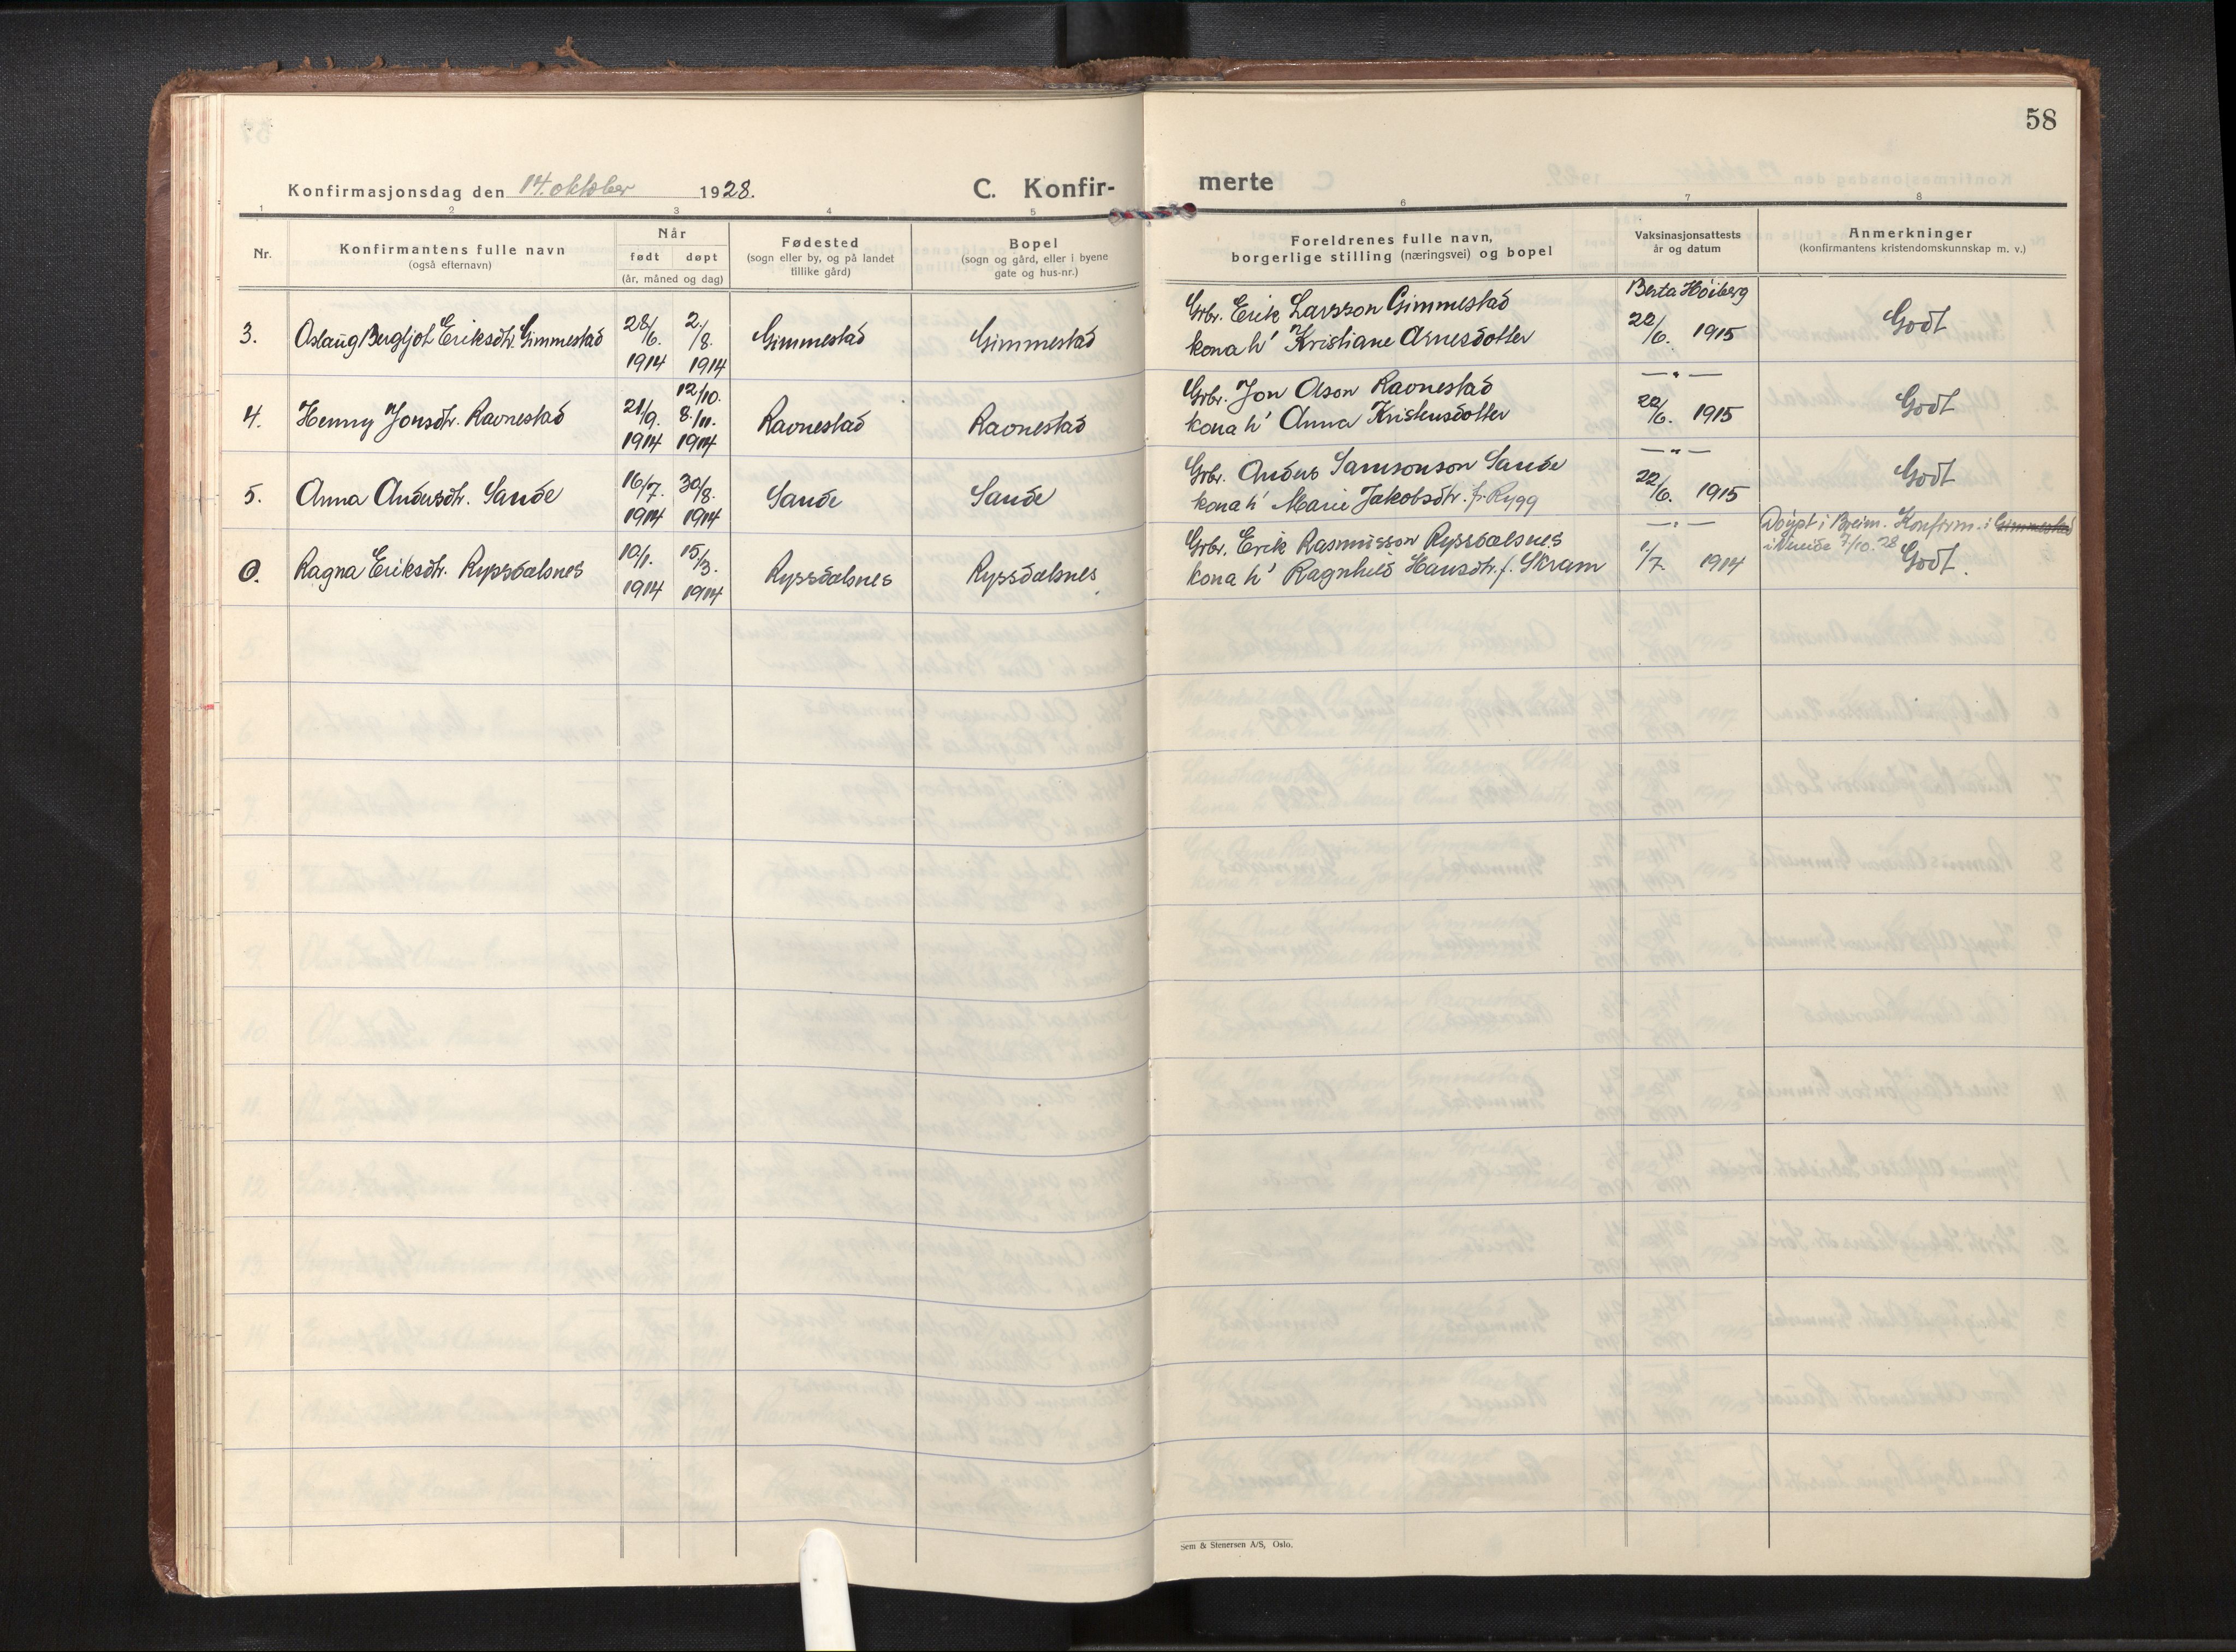 58
Konfirmasjonsdag den 14. oktober 1928.
C. Konfir-
merte
1 2 3 4 5 6 7 8
Nr.
Konfirmantens fulle navn
(også efternavn)
Når
født døpt
(år, måned og dag)
Fødested
(sogn eller by, og på landet
tillike gård)
Bopel
(sogn og gård, eller i byene
gate og hus-nr.)
Foreldrenes fulle navn,
borgerlige stilling (næringsvei) og bopel
Vaksinasjonsattests
år og datum
Anmerkninger
(konfirmantens kristendomskunnskap m. v.)
3. Aslaug Bergljot Eriksdtr. Gimmestad 28/6. 1914 2./8. 1914 Gimmestad Gimmestad
Grbr. Erik Larsson Gimmestad
kona h' Kristiane Arnesdotter
Berta Höiberg
22/6. 1915
Godt
4. Henny Jonsdtr. Ravnestad 21/9. 1914 12/10. 8./11. 1914 Ravnestad Ravnestad
Grbr. Jon Olson Ravnestad
kona h' Anna Kristensdotter
—"—
22/6. 1915
Godt
5. Anna Andersdtr. Sande 16/7. 1914 30/8. 1914 Sande Sande
Grbr. Anders Samsonson Sande
kona h' Marie Jakobsdtr. f. Rygg
—"—
22/6. 1915
Godt
0. Ragna Eriksdtr. Ryssdalsnes 10/1. 1914 15/3. 1914 Ryssdalsnes Ryssdalsnes
Grbr. Erik Rasmusson Ryssdalsnes
kona h' Ragnhild Hansdtr. f. Skram
—"—
1./7. 1914
Döypt i Breim. Konfirm. i Gimmestad
i Vereide 7/10.28
Godt.
Sem & Stenersen A/S, Oslo.